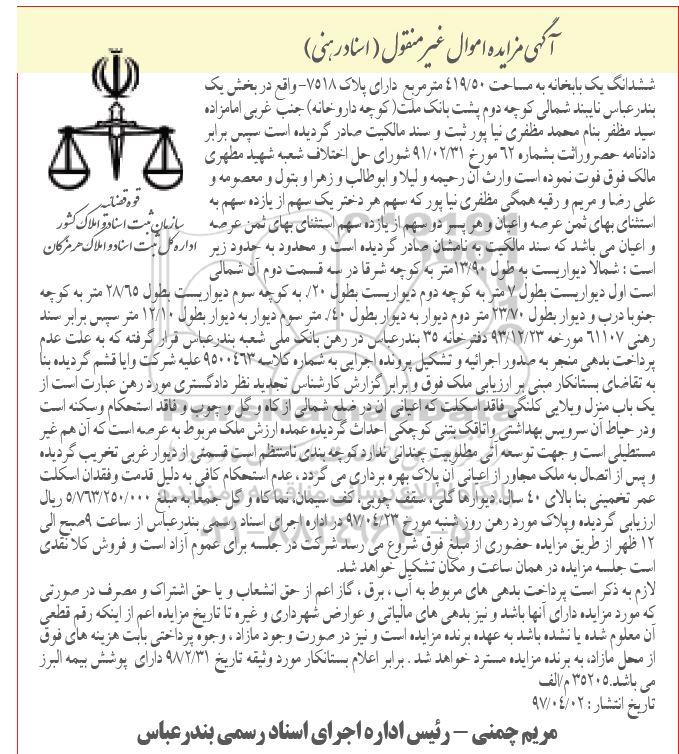 آگهی مزایده اموال غیر منقول (اسناد رهنی)
ششدانگ یک بابخانه به مساحت ۴۱۹/۵۰ مترمربع دارای پلاک ۷۵۱۸- واقع در بخش یک
بندرعباس نایبند شمالی کوچه دوم پشت بانک ملت (کوچه داروخانه) جنب غربی امامزاده
سید مظفر بنام محمد مظفری نیا پور ثبت و سند مالکیت صادر گردیده است سپس برابر
دادنامه حصروراثت بشماره ۶۲ مورخ ۹۱/۰۲/۳۱ شورای حل اختلاف شعبه شهید مطهری
مالک فوق فوت نموده است وارث آن رحیمه و لیلا و ابوطالب و زهرا و بتول و معصومه و
علی رضا و مریم و رقیه همگی مظفری نیا پور که سهم هر دختر یک سهم از یازده سهم به
استثنای بهای ثمن عرصه واعیان و هر پسر دو سهم از یازده سهم استثنای بهای ثمن عرصه
و اعیان می باشد که سند مالکیت به نامشان صادر گردیده است و محدود به حدود زیر
است : شمالا دیواریست به طول ۱۳/۹۰متر به کوچه شرقا در سه قسمت دوم آن شمالی
قوه قضائیه
سازمان ثبت اسناد و املاک کشور
اداره کل ثبت اسناد و املاک هرمزگان
است اول دیواریست بطول ۷ متر به کوچه دوم دیواریست بطول ۲۰/. به کوچه سوم دیواریست بطول ۲۸/۶۵ متر به کوچه
جنوبا درب و دیوار بطول ۲۳/۷۰ متر دوم دیوار به دیوار بطول ۴۰/. متر سوم دیوار به دیوار بطول ۱۲/۱۰ متر سپس برابر سند
رهنی ۶۱۱۰۷ مورخه ۹۳/۱۲/۲۳ دفترخانه ۳۵ بندرعباس در رهن بانک ملی شعبه بندرعباس قرار گرفته که به علت عدم
پرداخت بدهی منجر به صدور اجرائیه و تشکیل پرونده اجرایی به شماره کلاسه ۹۵۰۰۴۶۳ علیه شرکت وایا قشم گردیده بنا
به تقاضای بستانکار مبنی بر ارزیابی ملک فوق و برابر گزارش کارشناس تجدید نظر دادگستری مورد رهن عبارت است از
یک باب منزل ویلایی کلنگی فاقد اسکلت که اعیانی ان در ضلع شمالی از کاه و گل و چوب و فاقد استحکام وسکنه است
ودر حیاط آن سرویس بهداشتی واتاقک بتنی کوچکی احداث گردیده عمده ارزش ملک مربوط به عرصه است که آن هم غیر
مستطیلی است و جهت توسعه آتی مطلوبیت چندانی ندارد کوچه بندی نامنتظم است قسمتی از دیوار غربی تخریب گردیده
و پس از اتصال به ملک مجاور از اعیانی آن پلاک بهره برداری می گردد ، عدم استحکام کافی به دلیل قدمت وفقدان اسکلت
عمر تخمینی بنا بالای ۴۰ سال، دیوارها گلی، سقف چوبی، کف سیمان، نما کاه و گل جمعا به مبلغ ۵/۷۶۳/۲۵۰/۰۰۰ ریال
ارزیابی گردیده وپلاک مورد رهن روز شنبه مورخ ۹۷/۰۴/۲۳ در اداره اجرای اسناد رسمی بندرعباس از ساعت ۹صبح الی
۱۲ ظهر از طریق مزایده حضوری از مبلغ فوق شروع می رسد شرکت در جلسه برای عموم آزاد است و فروش کلا نقدی
است جلسه مزایده در همان ساعت و مکان تشکیل خواهد شد.
لازم به ذکر است پرداخت بدهی های مربوط به آب ، برق ، گاز اعم از حق انشعاب و یا حق اشتراک و مصرف در صورتی
که مورد مزایده دارای آنها باشد و نیز بدهی های مالیاتی و عوارض شهرداری و غیره تا تاریخ مزایده اعم از اینکه رقم قطعی
آن معلوم شده یا نشده باشد به عهده برنده مزایده است و نیز در صورت وجود مازاد ، وجوه پرداختی بابت هزینه های فوق
از محل مازاد، به برنده مزایده مسترد خواهد شد . برابر اعلام بستانکار مورد وثیقه تاریخ ۹۸/۲/۳۱ دارای پوشش بیمه البرز
می باشد.۳۵۲۰۵ م/الف
تاریخ انتشار : ۹۷/۰۴/۰۲
مریم چمنی – رئیس اداره اجرای اسناد رسمی بندرعباس